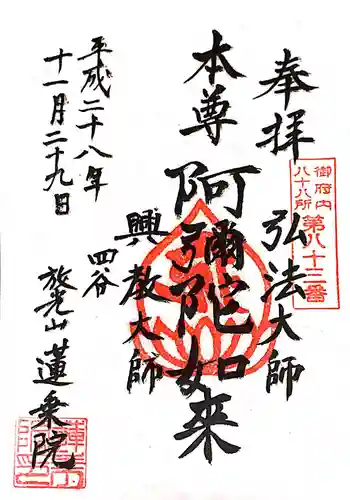 奉拝
弘法大師
御府内
八十八所
第八十三番
本尊
阿彌陀如来
興教大師
平成二十八年
十一月二十九日
四谷
放光山
蓮乗院